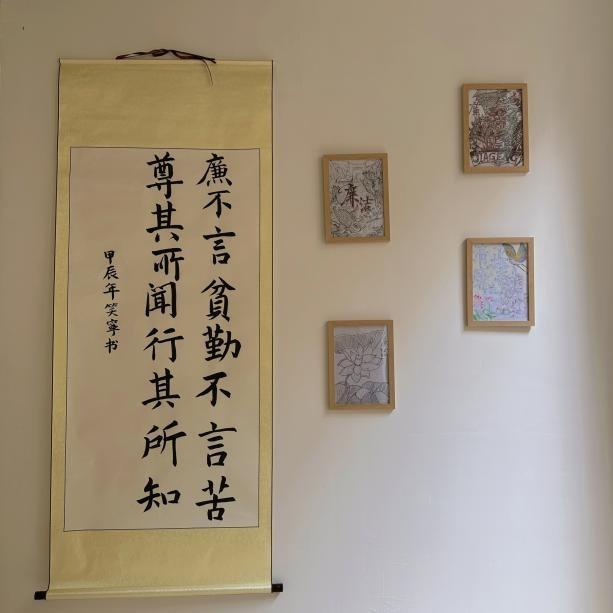 廉不言貧勤不言苦
尊其所闻行其所知
甲辰年笑寧书
廉洁